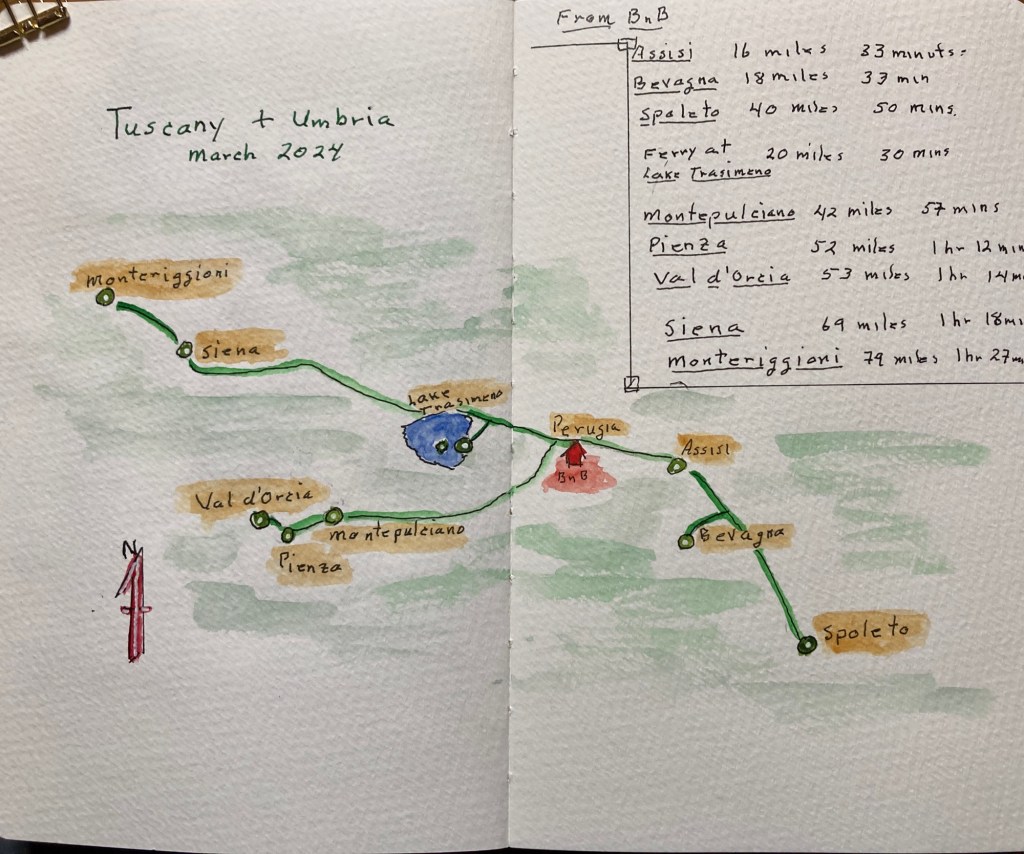 From BnB
Assisi 16 miles 33 minuts.
Bevagna 18 miles 33 min
Spoleto 40 miles 50 mins.
Ferry at 20 miles 30 mins
Lake Trasimeno
Montepulciano 42 miles 57 mins
Pienza 52 miles 1 hr 12 min
Val d'Orcia 53 miles 1 hr 14m
Siena 69 miles 1 hr 18mi
Monteriggioni 79 miles 1 hr 27m
Tuscany + Umbria
March 2024
Monteriggioni
Siena
Lake
Trasimeno
Perugia
BnB
Assisi
Val d'Orcia
Montepulciano
Pienza
Bevagna
Spoleto
N